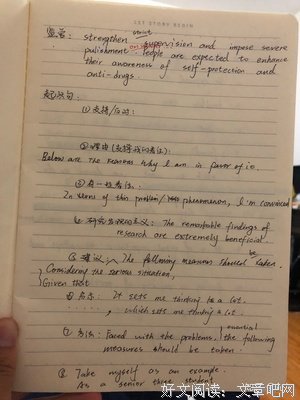 LET STORY BEGIN
监管: strengthen strict supervision and impose severe
punishment on. People are expected to enhance
their awareness of self-protection and
anti-drugs.
起承句:
① 支持/反对:
② 理由(支撑我的看法):
Below are the reasons why I am in favor of it.
③ 有一些看法:
In views of this problem/ phenomenon, I'm convinced
④ 研究发现的意义: The remarkable findings of
research are extremely beneficial.
⑤ 建议: The following measures should be taken.
Considering the serious situation,
Given that
⑥ 启示: It sets me thinking for a lot.
, which sets me thinking a lot.
⑦ 方法: Faced with the problems, the following essential
measures should be taken.
⑧ Take myself as an example.
As a senior three student
好文阅读: 文章吧网